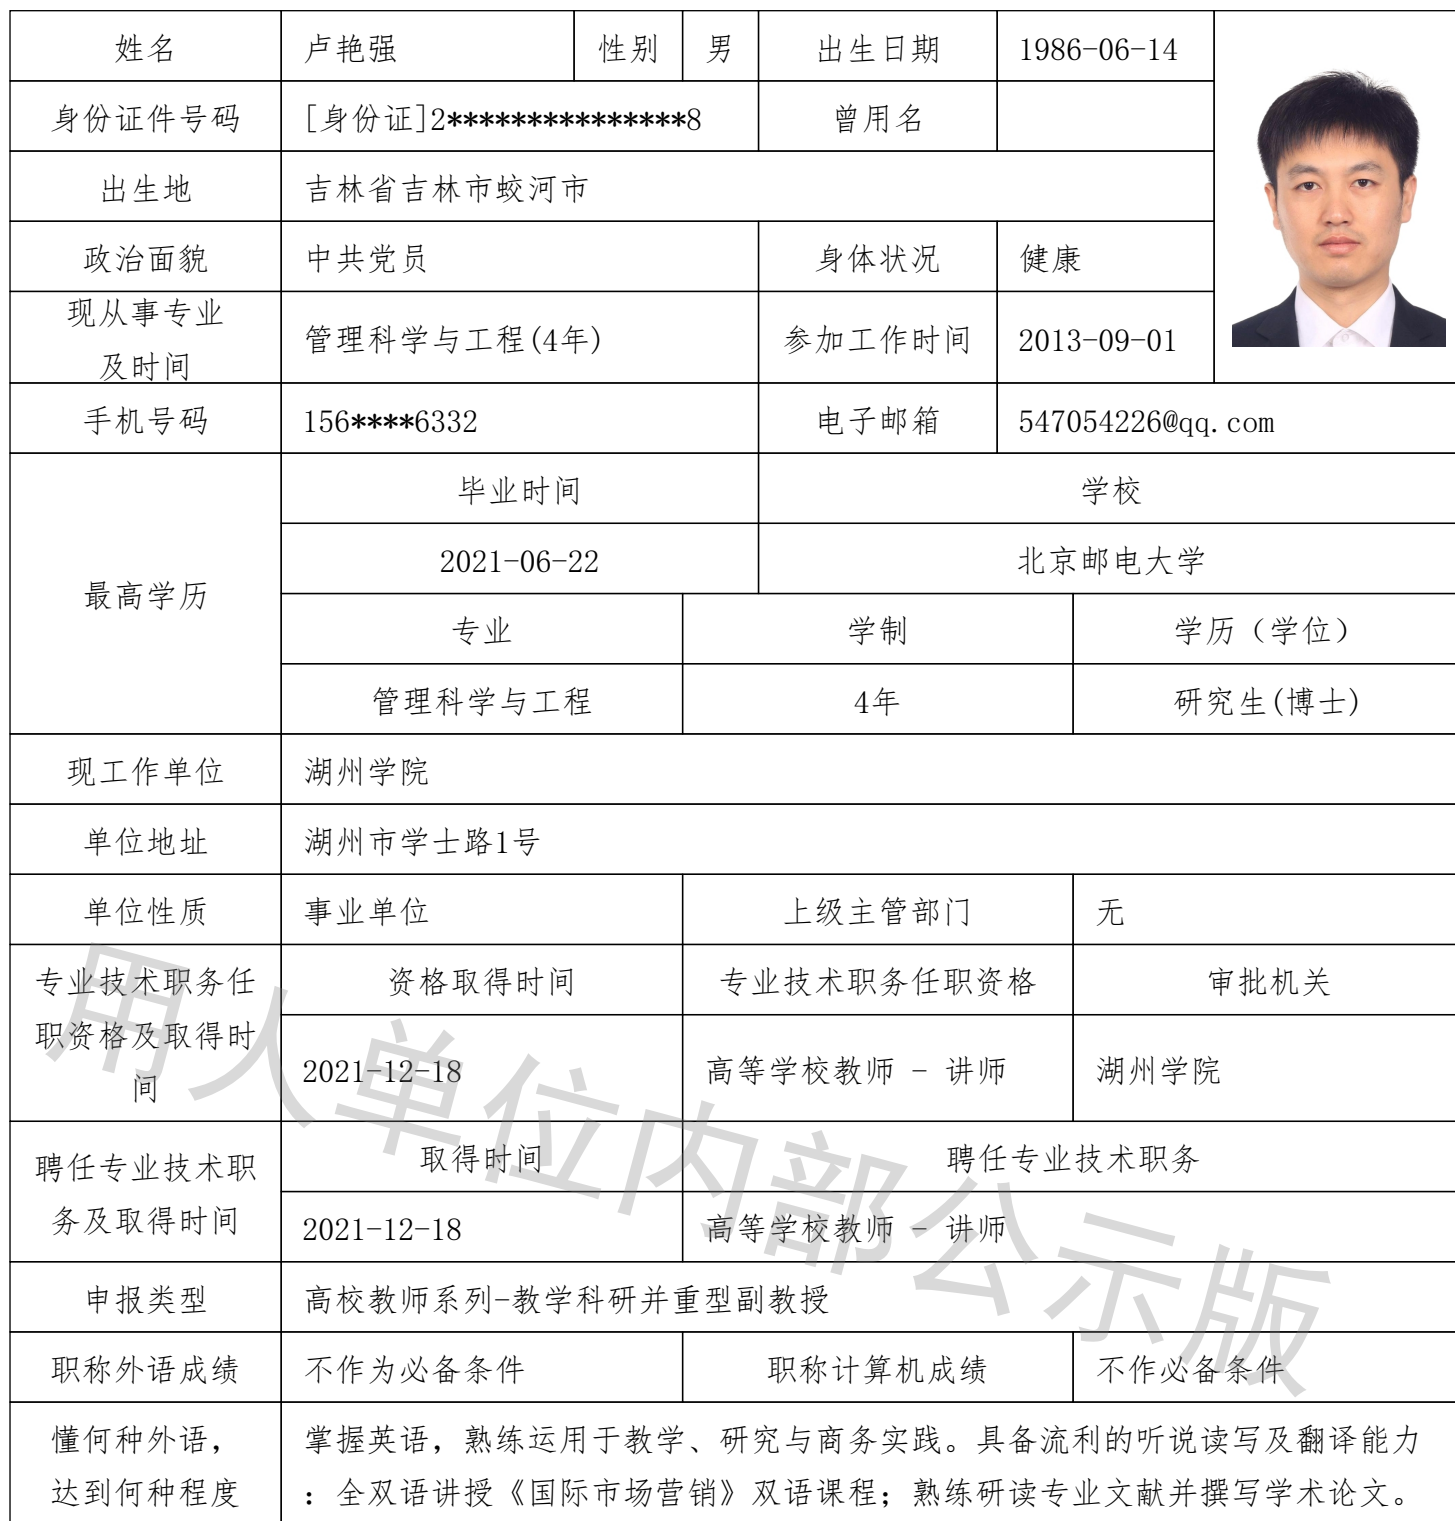 姓名 卢艳强 性别 男 出生日期 1986-06-14
身份证件号码 [身份证]2***************8 曾用名
出生地 吉林省吉林市蛟河市
政治面貌 中共党员 身体状况 健康
现从事专业
及时间 管理科学与工程(4年) 参加工作时间 2013-09-01
手机号码 156****6332 电子邮箱 547054226@qq.com
最高学历
毕业时间 学校
2021-06-22 北京邮电大学
专业 学制 学历（学位）
管理科学与工程 4年 研究生(博士)
现工作单位 湖州学院
单位地址 湖州市学士路1号
单位性质 事业单位 上级主管部门 无
专业技术职务任
职资格及取得时
间
资格取得时间 专业技术职务任职资格 审批机关
2021-12-18 高等学校教师 - 讲师 湖州学院
聘任专业技术职
务及取得时间
取得时间 聘任专业技术职务
2021-12-18 高等学校教师 - 讲师
申报类型 高校教师系列-教学科研并重型副教授
职称外语成绩 不作为必备条件 职称计算机成绩 不作必备条件
懂何种外语，
达到何种程度
掌握英语，熟练运用于教学、研究与商务实践。具备流利的听说读写及翻译能力
：全双语讲授《国际市场营销》双语课程；熟练研读专业文献并撰写学术论文。
用人单位内部公示版